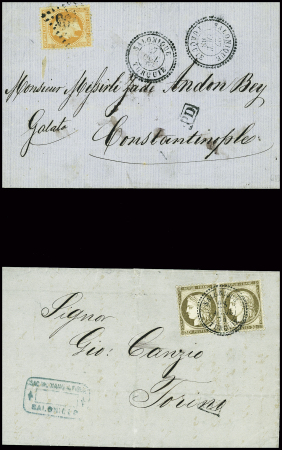 SALONIQUE
TURQUIE
SALONIQUE
Monsieur Missirli zade Andon Bey
PD
Galata
Constantinople
Signor
Gio: Canzio
Torino
SALONICCO